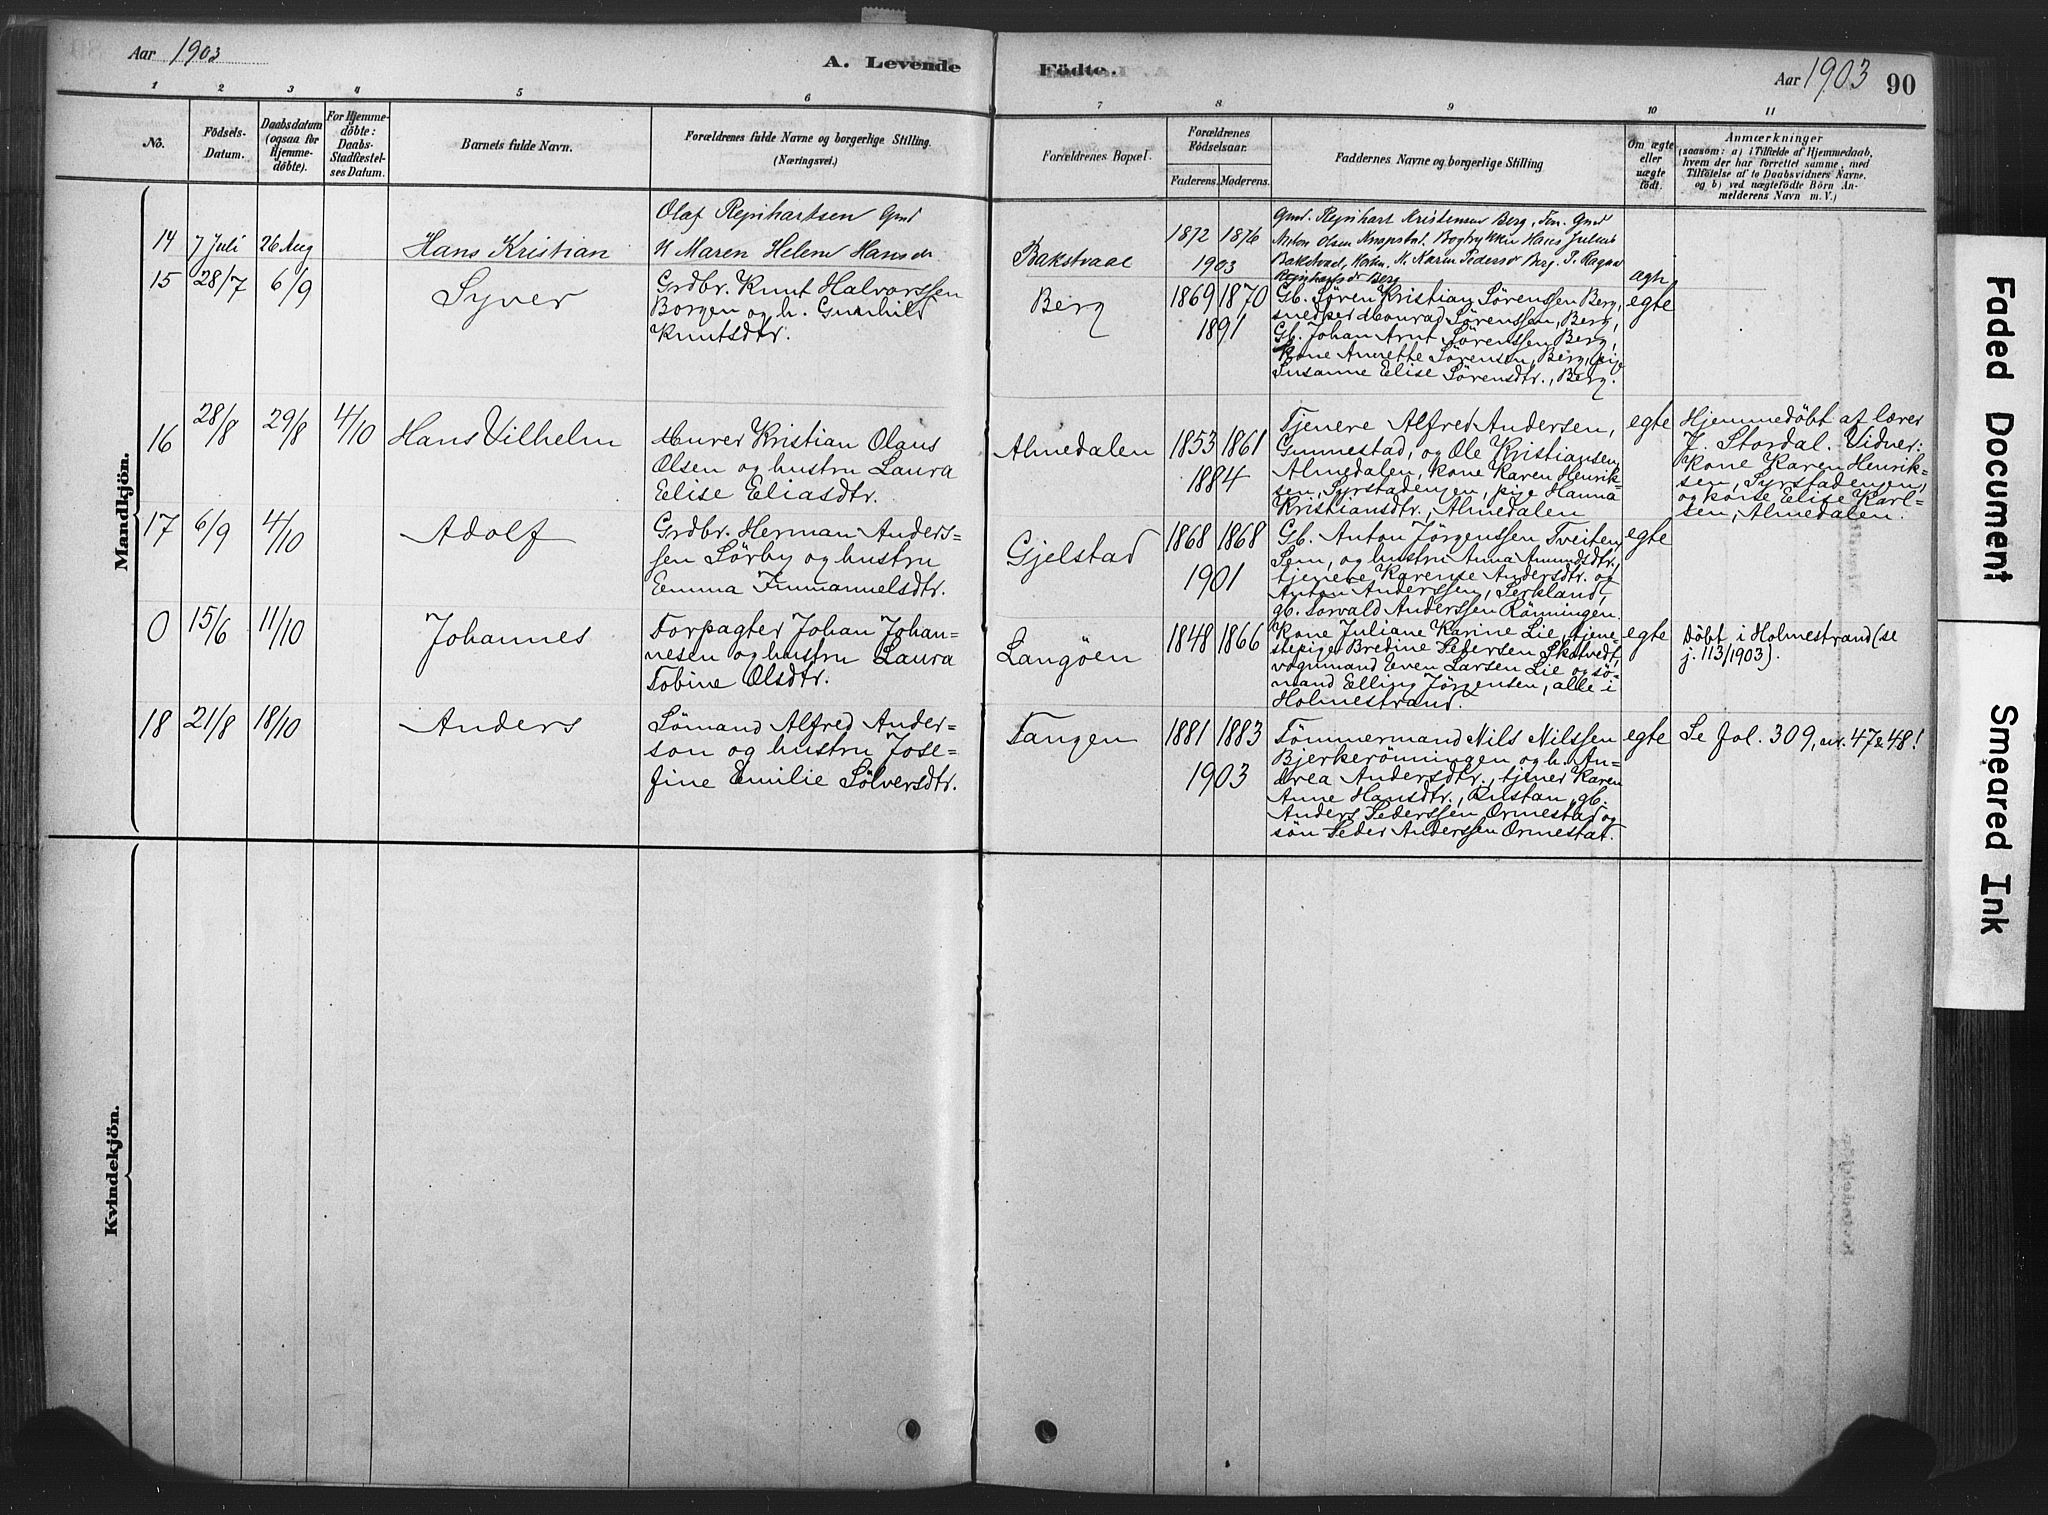 Aar 1903
A. Levende
Födte.
Aar 1903 90
1 2 3 4 5 6 7 8 9 10 11
No.
Födsels-
Datum.
Daabsdatum
(ogsaa for
Hjemme-
döbte).
For Hjemme-
döbte:
Daabs-
Stadfæstel-
ses Datum.
Barnets fulde Navn.
Forældrenes fulde Navne og borgerlige Stilling.
(Næringsvei.)
Forældrenes Bopæl.
Forældrenes
Födselsaar.
Faderens. Moderens.
Faddernes Navne og borgerlige Stilling
Om ægte
eller
uægte
født.
Anmærkninger
(saasom: a) i Tilfælde af Hjemmedaab,
hvem der har forrettet samme, med
Tilföielse af to Daabsvidners Navne,
og b) ved uægtefödte Börn An-
melderens Navn m. V.)
Mandkjön.
14 7 Juli 26 Aug
Hans Kristian
Olaf Rejnhartsen Gmd
H Maren Helene Hansen
Bakstvaal
1872 1876
1903
Gmd. Rejnhart Kristensen Berg, Gmd
Anton Olsen Knapstat. Bogtrykker Hans Julius
Bakstvaal, H. Karen Pederss Berg, P. Ragna
Rejnhartsdr Berg
ægte
15 28/7 6/9
Syver
Grdbr. Knut Halvorssen
Borgen og h. Gunhild
Knutsdtr.
Berg
1869 1870
1891
Gb. Sören Kristian Sörenssen Berg,
snedker Konrad Sörenssen, Berg,
Gb. Johan Arnt Sörenssen Berg,
Kone Annette Sörensen, Berg, pige
Susanne Elise Sörensdtr., Berg.
egte
16 28/8 29/8 4/10
Hans Vilhelm
Murer Kristian Olaus
Olsen og hustru Laura
Elise Eliasdtr.
Almedalen
1853 1861
1884
Tjenere Alfred Andersen,
Gunnestad, og Ole Kristiansen
Almedalen, kone Karen Henrik-
sen, Syrstadengen, pige Hanna
Kristiansdtr., Almedalen
egte
Hjemmedöbt af lærer
J. Stordal. Vidner:
Kone Karen Henrik-
sen, Syrstadengen,
og kone Elise Karl-
sen, Almedalen.
17 6/9 4/10
Adolf
Grdbr. Herman Anders-
sen Sörby og hustru
Emma Immanuelsdtr.
Gjelstad
1868 1868
1901
Gb. Anton Jörgenssen Tveiten,
Sem, og hustru Anna Amundsdtr,
tjenere Karense Andersdtr. og
Anton Anderssen, Serkland,
gb. Torvald Anderssen Rönningen.
egte
0 15/6 11/10
Johannes
Forpagter Johan Johan-
nesen og hustru Laura
Tobine Olsdtr.
Langöen
1848 1866
Kone Juliane Karine Lie, tjene-
stepige Bredine Pedersen Skotvedt,
vognmand Even Larsen Lie og sö-
mand Elling Jörgensen, alle i
Holmestrand.
egte
Döbt i Holmestrand (se
j. 113/1903).
18 21/8 18/10
Anders
Sömand Alfred Ander-
son og hustru Jose-
fine Emilie Sölversdtr.
Tangen
1881 1883
1903
Tömmermand Nils Nilssen
Bjerkerönningen og h. An-
drea Andersdtr., tjener Karen
Anne Hansdtr., Bustan, gb.
Anders Pederssen Ormestad og
sön Peder Anderssen Ormestat.
egte
Se Jol. 309, nr. 47 & 48!
Kvindekjön.
Faded Document
Smeared Ink